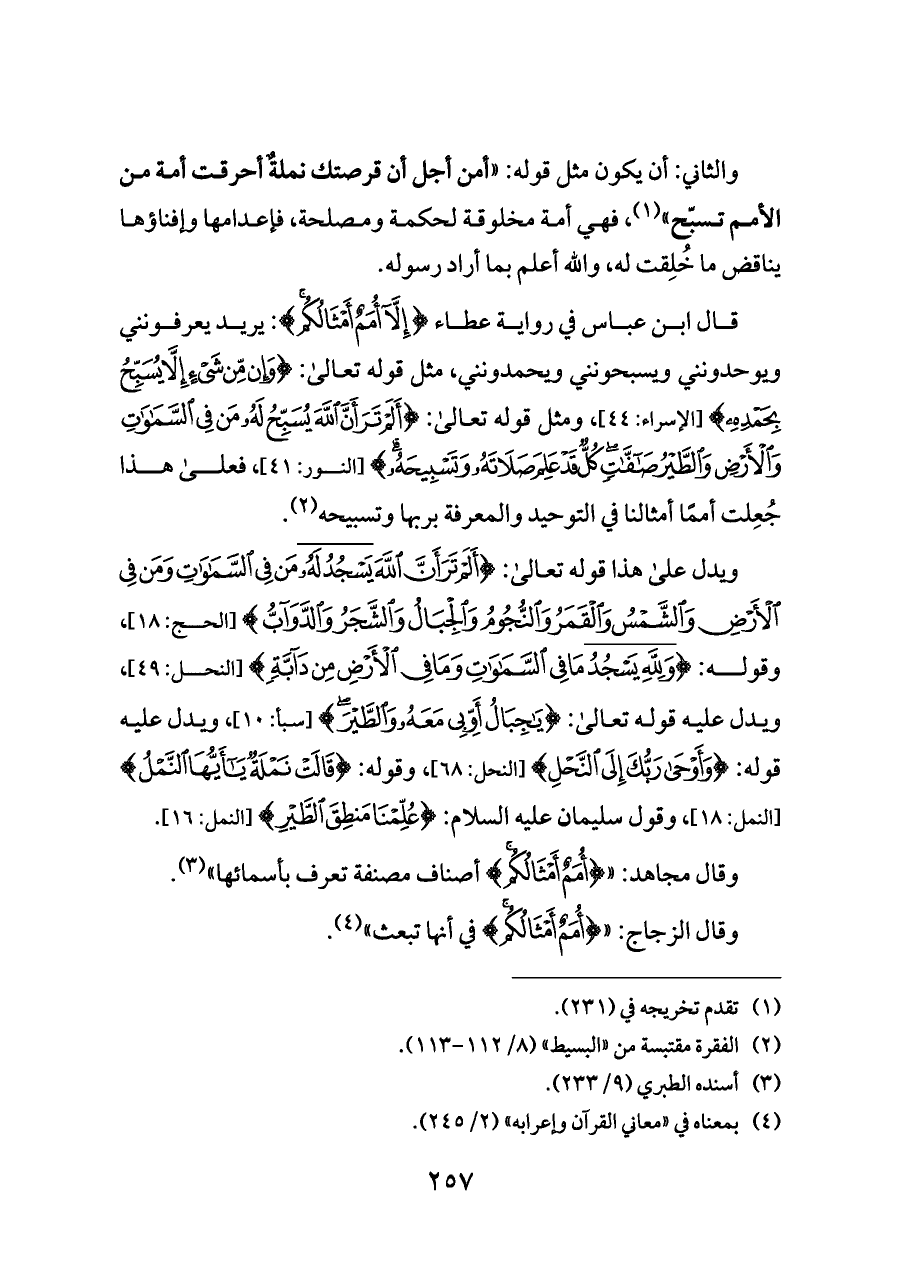 والثاني: أن يكون مثل قوله: «أمن أجل أن قرصتك نملةٌ أحرقت أمة من
الأمم تسبّح»(١)، فهي أمة مخلوقة لحكمة ومصلحة، فإعدامها وإفناؤها
يناقض ما خُلِقت له، والله أعلم بما أراد رسوله.
قال ابن عباس في رواية عطاء ﴿إِلَّآ أُمَمٌ أَمْثَالُكُمۚ﴾: يريد يعرفونني
ويوحدونني ويسبحونني ويحمدونني، مثل قوله تعالىٰ: ﴿وَإِن مِّن شَىْءٍ إِلَّا يُسَبِّحُ
بِحَمْدِهِۦ﴾ [الإسراء: ٤٤]، ومثل قوله تعالىٰ: ﴿أَلَمْ تَرَ أَنَّ ٱللَّهَ يُسَبِّحُ لَهُۥ مَن فِى ٱلسَّمَٰوَٰتِ
وَٱلْأَرْضِ وَٱلطَّيْرُ صَٰٓفَّٰتٍۖ كُلٌّ قَدْ عَلِمَ صَلَاتَهُۥ وَتَسْبِيحَهُۥۗ﴾ [النور: ٤١]، فعلىٰ هذا
جُعِلت أممًا أمثالنا في التوحيد والمعرفة بربها وتسبيحه(٢).
ويدل علىٰ هذا قوله تعالىٰ: ﴿أَلَمْ تَرَ أَنَّ ٱللَّهَ يَسْجُدُ لَهُۥ مَن فِى ٱلسَّمَٰوَٰتِ وَمَن فِى
ٱلْأَرْضِ وَٱلشَّمْسُ وَٱلْقَمَرُ وَٱلنُّجُومُ وَٱلْجِبَالُ وَٱلشَّجَرُ وَٱلدَّوَآبُّ﴾ [الحج: ١٨]،
وقوله: ﴿وَلِلَّهِ يَسْجُدُ مَا فِى ٱلسَّمَٰوَٰتِ وَمَا فِى ٱلْأَرْضِ مِن دَآبَّةٍ﴾ [النحل: ٤٩]،
ويدل عليه قوله تعالىٰ: ﴿يَٰجِبَالُ أَوِّبِى مَعَهُۥ وَٱلطَّيْرَۖ﴾ [سبأ: ١٠]، ويدل عليه
قوله: ﴿وَأَوْحَىٰ رَبُّكَ إِلَى ٱلنَّحْلِ﴾ [النحل: ٦٨]، وقوله: ﴿قَالَتْ نَمْلَةٌ يَٰٓأَيُّهَا ٱلنَّمْلُ﴾
[النمل: ١٨]، وقول سليمان عليه السلام: ﴿عُلِّمْنَا مَنطِقَ ٱلطَّيْرِ﴾ [النمل: ١٦].
وقال مجاهد: «﴿أُمَمٌ أَمْثَالُكُمۚ﴾ أصناف مصنفة تعرف بأسمائها»(٣).
وقال الزجاج: «﴿أُمَمٌ أَمْثَالُكُمۚ﴾ في أنها تبعث»(٤).
(١) تقدم تخريجه في (٢٣١).
(٢) الفقرة مقتبسة من «البسيط» (٨/ ١١٢-١١٣).
(٣) أسنده الطبري (٩/ ٢٣٣).
(٤) بمعناه في «معاني القرآن وإعرابه» (٢/ ٢٤٥).
٢٥٧